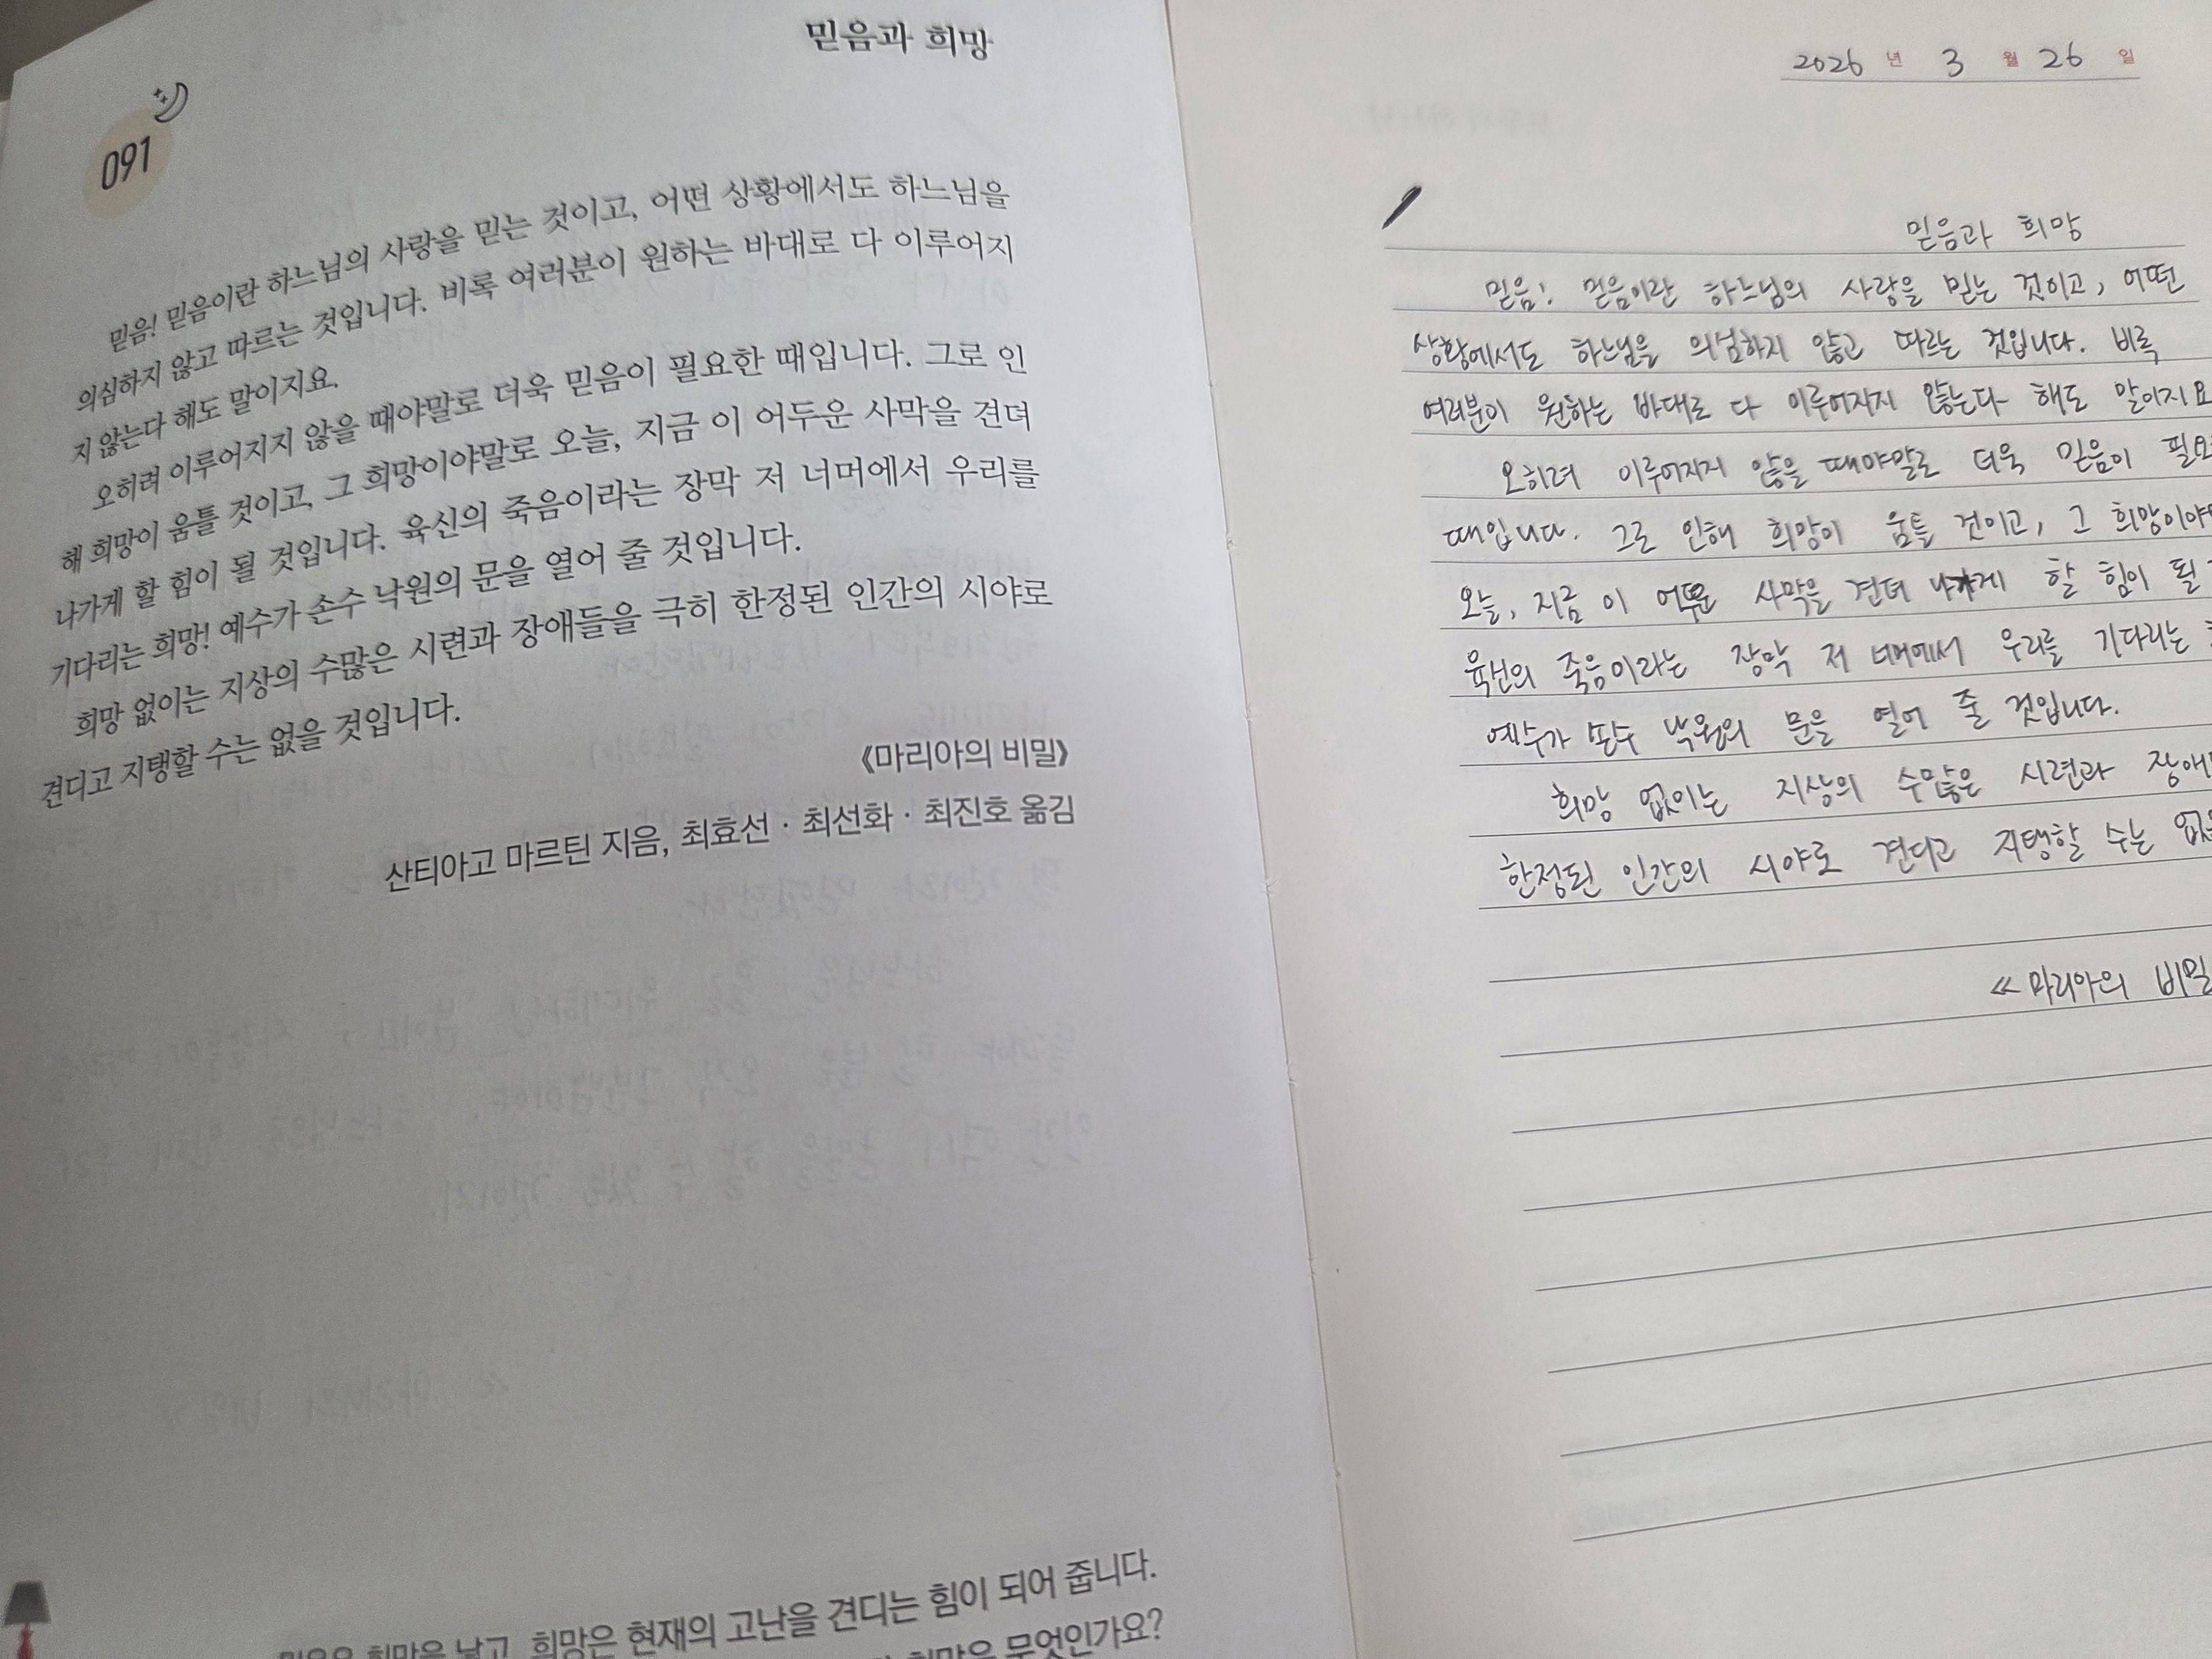 믿음과 희망
091
믿음! 믿음이란 하느님의 사랑을 믿는 것이고, 어떤 상황에서도 하느님을
의심하지 않고 따르는 것입니다. 비록 여러분이 원하는 바대로 다 이루어지
지 않는다 해도 말이지요.
오히려 이루어지지 않을 때야말로 더욱 믿음이 필요한 때입니다. 그로 인
해 희망이 움틀 것이고, 그 희망이야말로 오늘, 지금 이 어두운 사막을 견뎌
나가게 할 힘이 될 것입니다. 육신의 죽음이라는 장막 저 너머에서 우리를
기다리는 희망! 예수가 손수 낙원의 문을 열어 줄 것입니다.
희망 없이는 지상의 수많은 시련과 장애들을 극히 한정된 인간의 시야로
견디고 지탱할 수는 없을 것입니다.
《마리아의 비밀》
산티아고 마르틴 지음, 최효선 · 최선화 · 최진호 옮김
희망을 낳고, 희망은 현재의 고난을 견디는 힘이 되어 줍니다.
희망은 무엇인가요?
2026 년 3 월 26 일
믿음과 희망
믿음! 믿음이란 하느님의 사랑을 믿는 것이고, 어떤
상황에서도 하느님을 의심하지 않고 따르는 것입니다. 비록
여러분이 원하는 바대로 다 이루어지지 않는다 해도 말이지요
오히려 이루어지지 않을 때야말로 더욱 믿음이 필요
때입니다. 그로 인해 희망이 움틀 것이고, 그 희망이야
오늘, 지금 이 어두운 사막을 견뎌 나가게 할 힘이 될
육신의 죽음이라는 장막 저 너머에서 우리를 기다리는
예수가 손수 낙원의 문을 열어 줄 것입니다.
희망 없이는 지상의 수많은 시련과 장애
한정된 인간의 시야로 견디고 지탱할 수는 없을
≪마리아의 비밀